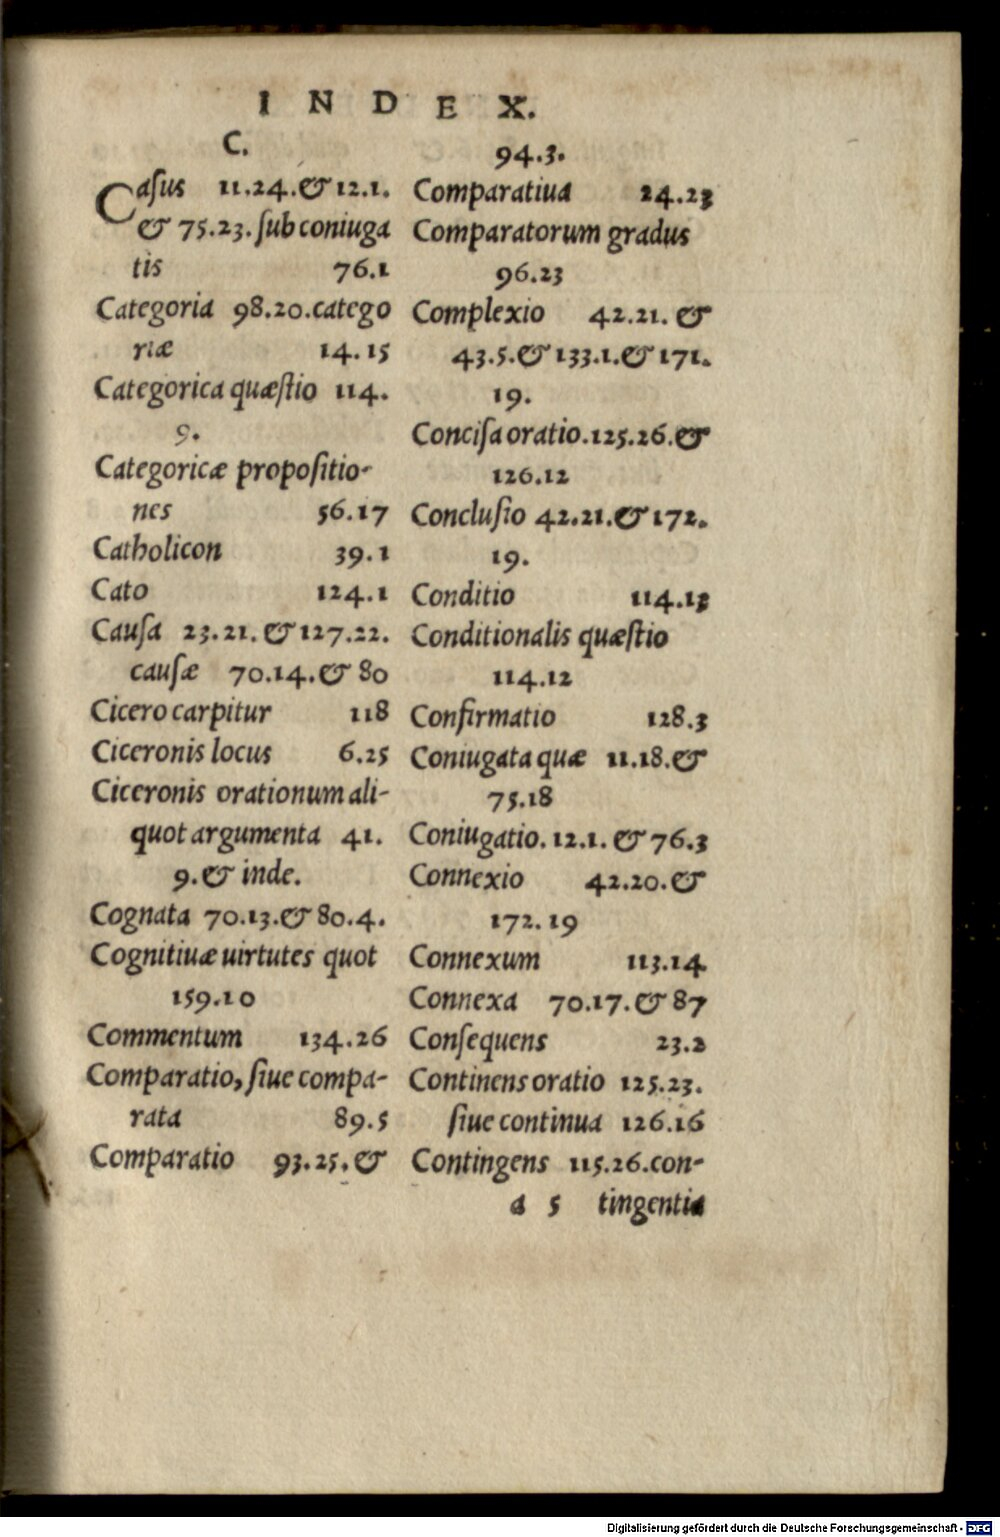 INDEX.
C.
Casus 11.24.& 12.1.
& 75.23. sub coniuga
tis 76.1
Categoria 98.20.catego
riæ 14.15
Categorica quæſtio 114.
9.
Categoricæ propoſitio-
nes 56.17
Catholicon 39.1
Cato 124.1
Cauſa 23.21. & 127.22.
cauſæ 70.14.& 80
Cicero carpitur 118
Ciceronis locus 6.25
Ciceronis orationum ali-
quot argumenta 41.
9.& inde.
Cognata 70.13.& 80.4.
Cognitiuæ uirtutes quot
159.10
Commentum 134.26
Comparatio, ſiue compa-
rata 89.5
Comparatio 93.25.&
94.3.
Comparatiua 24.23
Comparatorum gradus
96.23
Complexio 42.21. &
43.5.& 133.1.& 171.
19.
Conciſa oratio.125.26.&
126.12
Concluſio 42.21.& 172.
19.
Conditio 114.13
Conditionalis quæſtio
114.12
Confirmatio 128.3
Coniugata quæ 11.18.&
75.18
Coniugatio. 12.1. & 76.3
Connexio 42.20.&
172.19
Connexum 113.14
Connexa 70.17.& 87
Conſequens 23.2
Continens oratio 125.23.
ſiue continua 126.16
Contingens 115.26.con-
a 5 tingentia
Digitalisierung gefördert durch die Deutsche Forschungsgemeinschaft - DFG